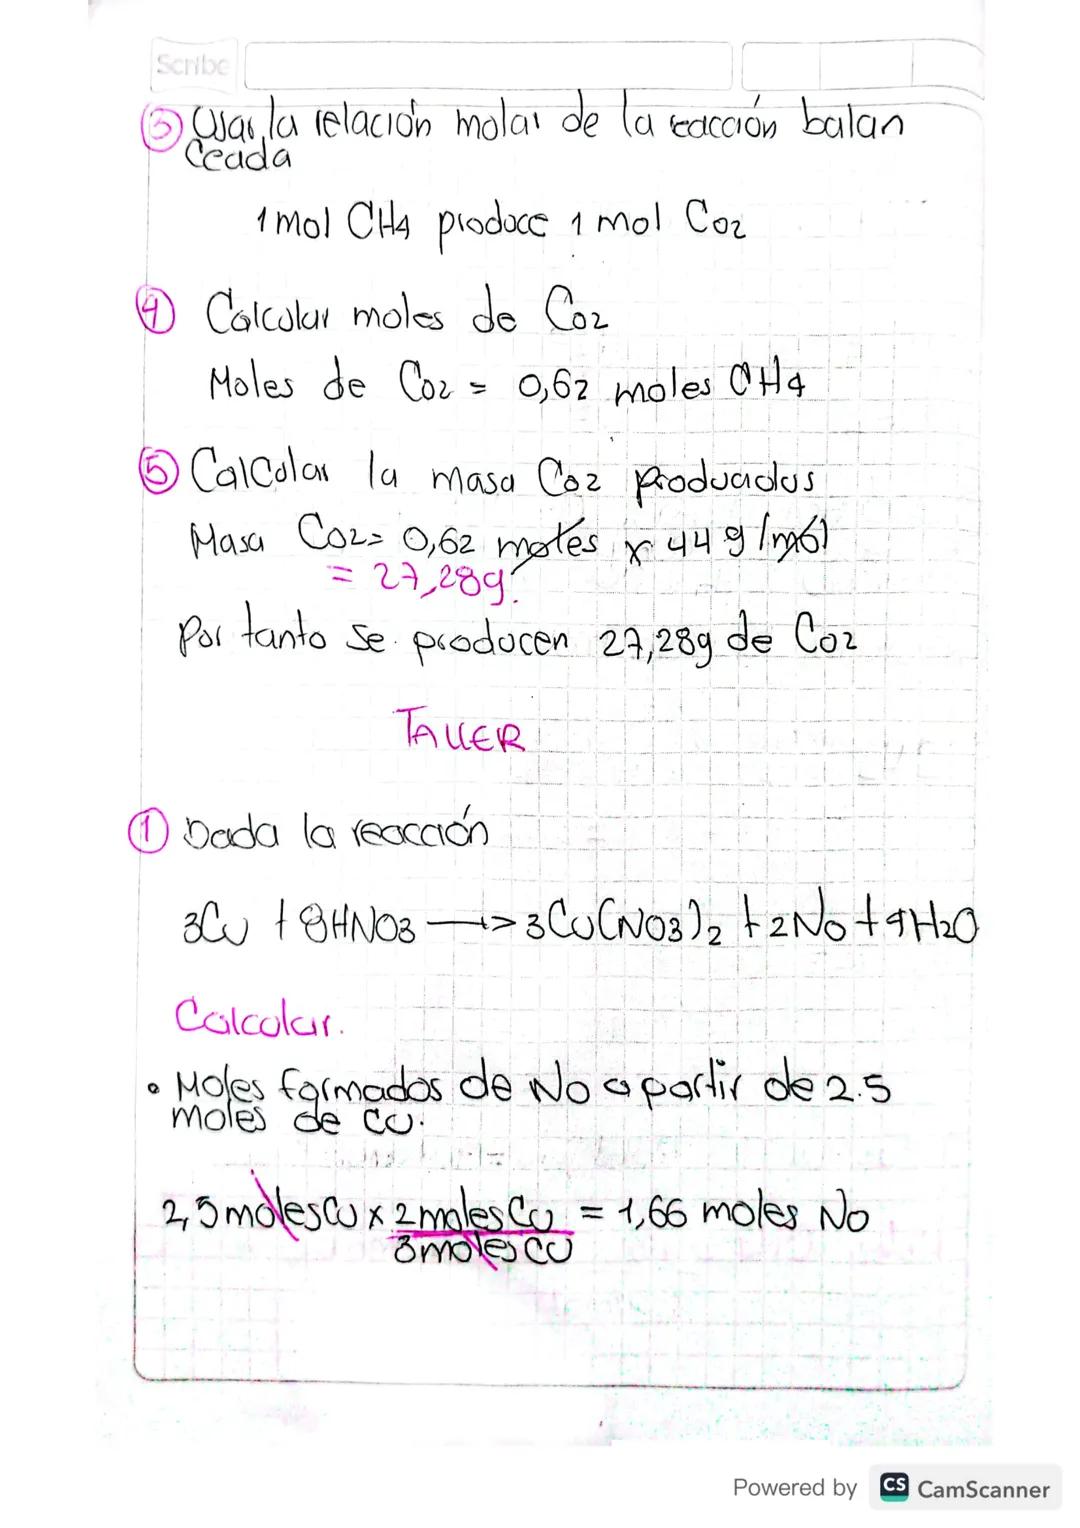 Scribe
③ Usar la relación molar de la reacción balan
ceada
1 mol CH4 produce 1 mol CO2
④ Calcular moles de CO2
Moles de CO2 = 0,62 moles CH4
⑤ Calcolar la masa CO2 producidos
Masa CO2= 0,62 moles x 44 g/mol
= 27,28g.
Por tanto se producen 27,28g de CO2
TALLER
① Dada la reacción
3Cu + 8HNO3 —> 3Cu(NO3)2 + 2No + 4H2O
Calcolar.
• Moles formados de No a partir de 2.5
moles de CU.
2,5 moles Cu x 2 moles Cu = 1,66 moles No
3 moles CU
Powered by CS CamScanner